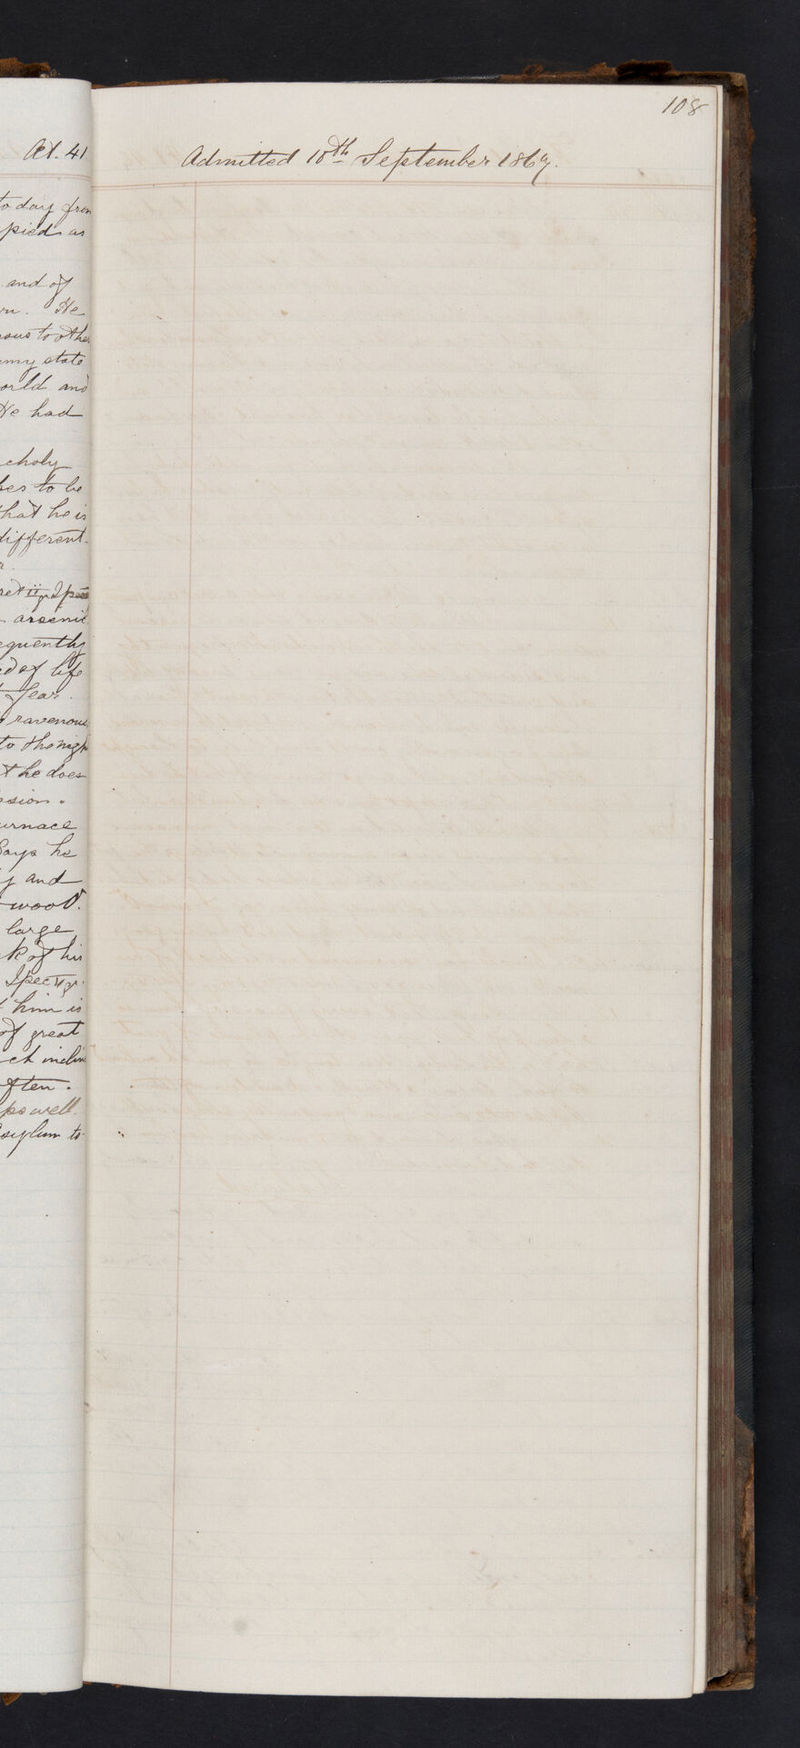 Aet. 41
to day from
pied as
and of
He
to other
my state
orld and
He had
choly
bes to be
that he is
different.
arsenic
equently
ed of life
fear.
ravenous
to the nigh
t he does
ssion.
urnace
Says he
y and
wood.
large
k of his
him is
of great
ch inclin
ften.
po well
asylum to
108
Admitted 10th September 1869.